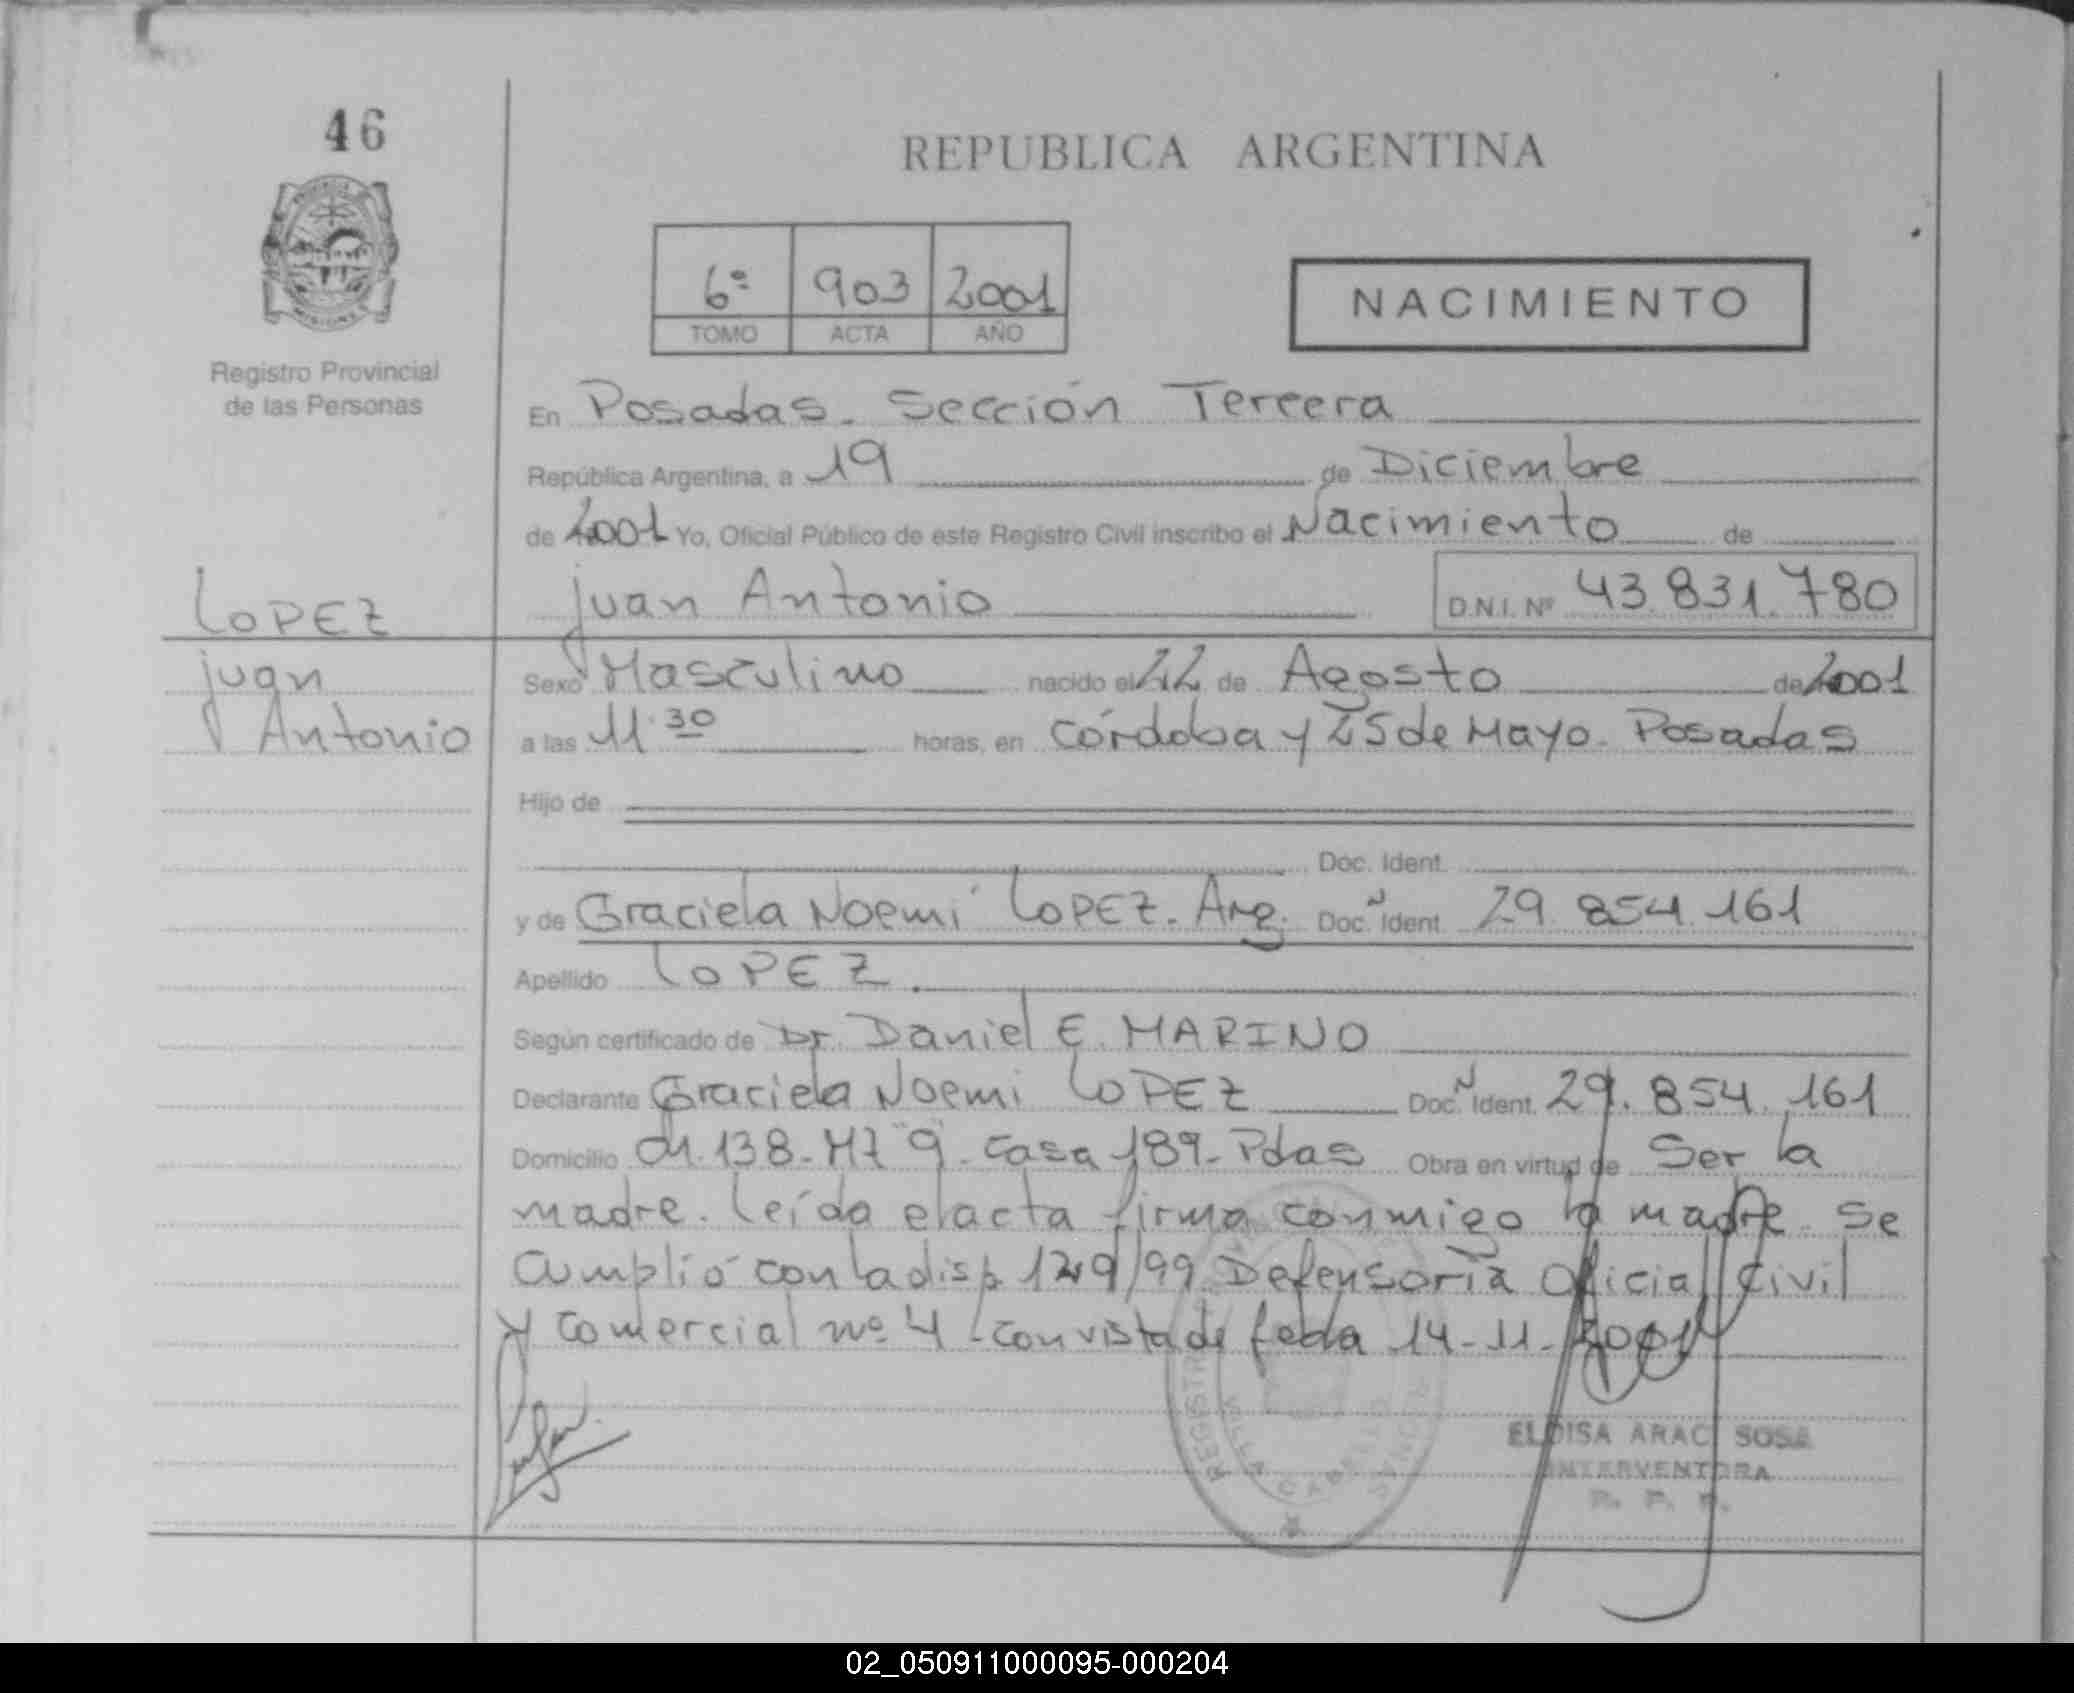 46
REPUBLICA ARGENTINA
6º 903 2001
TOMO ACTA AÑO
NACIMIENTO
Registro Provincial
de las Personas
En Posadas. Sección Tercera
República Argentina, a 19 de Diciembre
de 2001 Yo, Oficial Público de este Registro Civil inscribo el Nacimiento de
LOPEZ
Juan Antonio D.N.I. Nº 43.831.780
Juan
Antonio
Sexo Masculino nacido el 22 de Agosto de 2001
a las 11.30 horas, en Córdoba y 25 de Mayo. Posadas
Hijo de
Doc. Ident.
y de Graciela Noemí LOPEZ. Arg. Doc. N Ident. 29.854.161
Apellido LOPEZ.
Según certificado de Dr. Daniel E. MARINO
Declarante Graciela Noemi LOPEZ Doc. N Ident. 29.854.161
Domicilio Ch. 138 - Mz "9" - Casa 189 - Pdas Obra en virtud de Ser la
madre. Leída el acta firma conmigo la madre. Se
Cumplió con la disp. 1249/99 Defensoría Oficial Civil
y Comercial nº 4 - con vista de fecha 14-11-2001
REGISTR
VILLA CABELLO
ELOISA ARACI SOSA
INTERVENTORA
R. P. P.
02_050911000095-000204